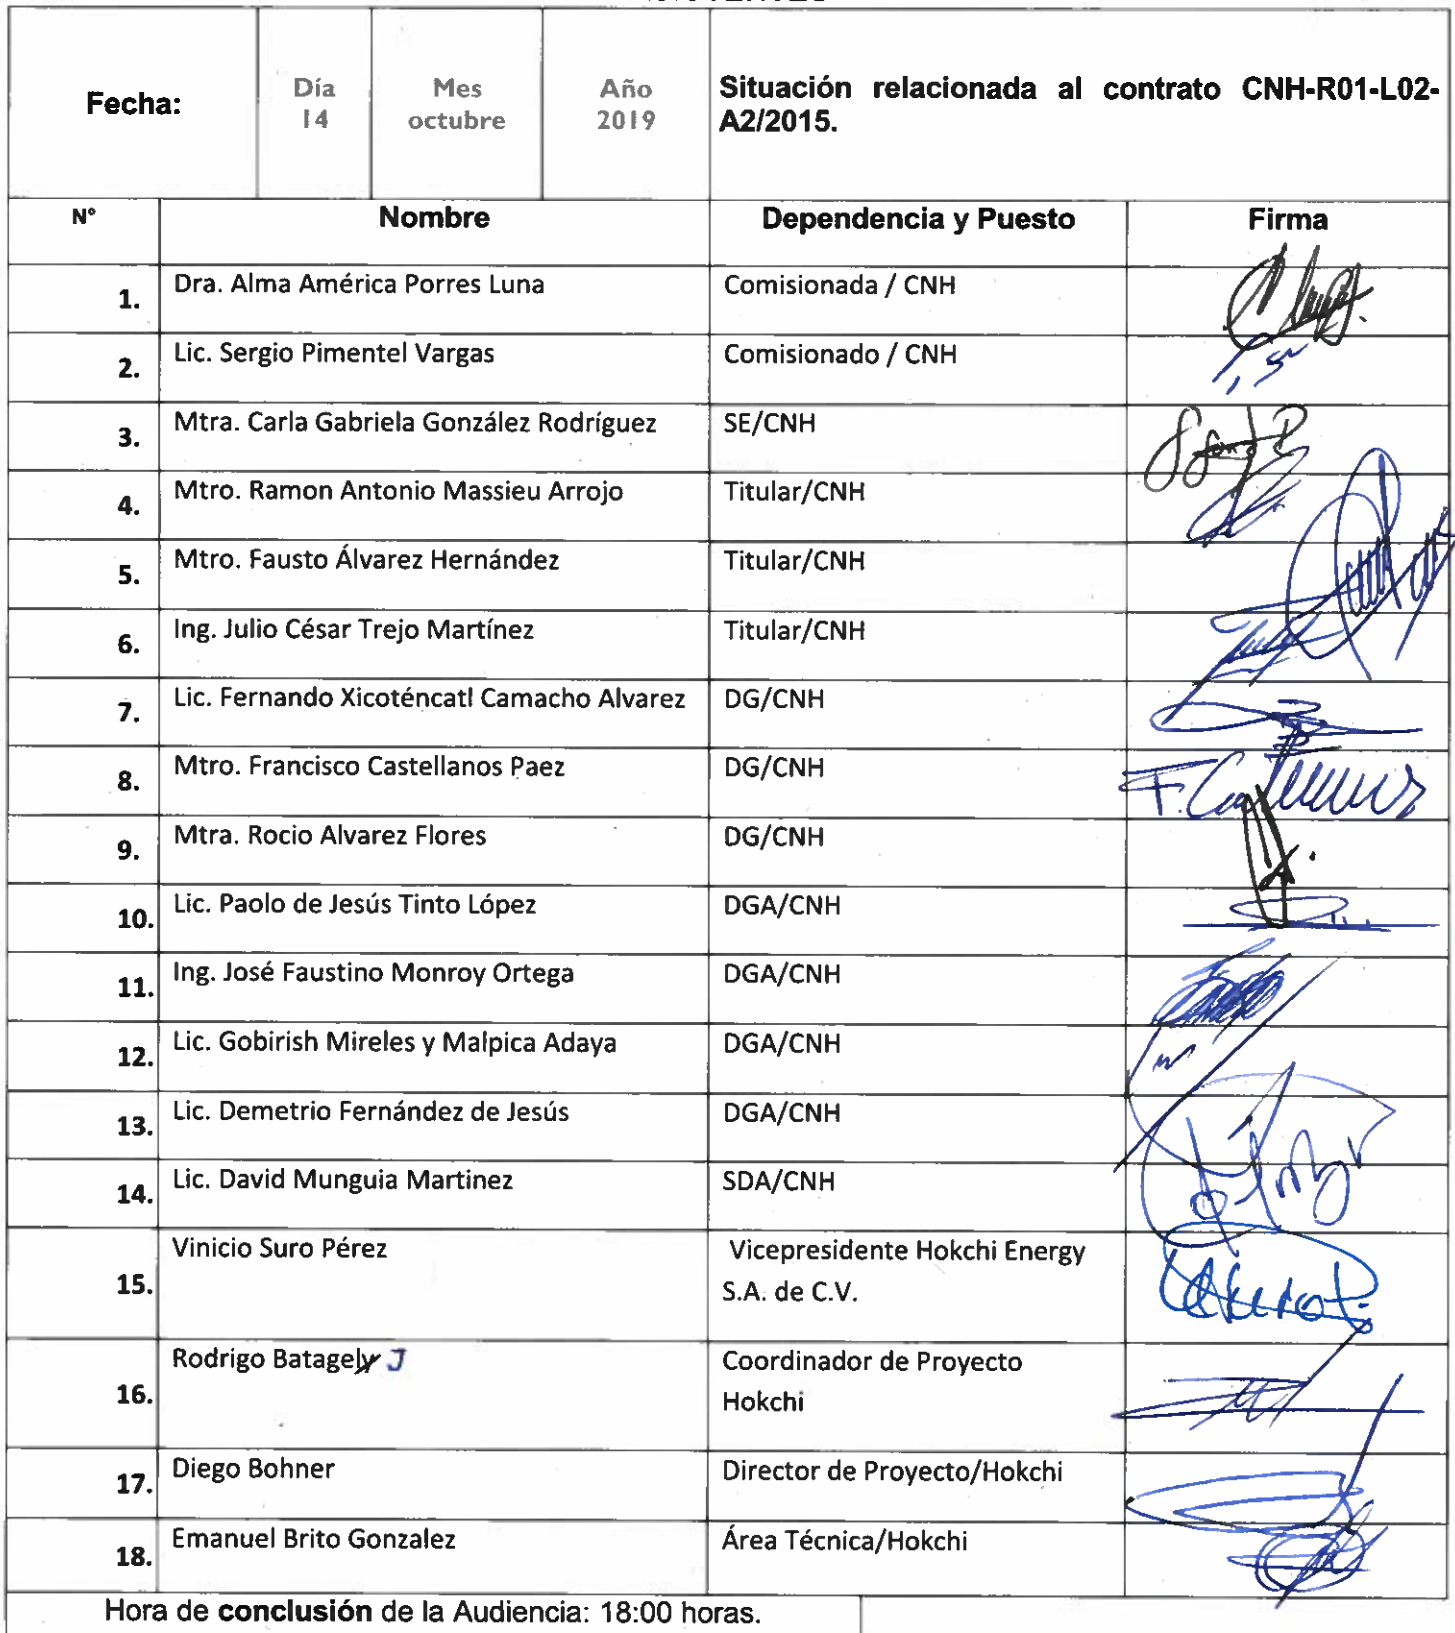 Fecha:
Día Mes Año
14 octubre 2019
Situación relacionada al contrato CNH-R01-L02-
A2/2015.
N° Nombre Dependencia y Puesto Firma
1. Dra. Alma América Porres Luna Comisionada / CNH
2. Lic. Sergio Pimentel Vargas Comisionado / CNH
3. Mtra. Carla Gabriela González Rodríguez SE/CNH
4. Mtro. Ramon Antonio Massieu Arrojo Titular/CNH
5. Mtro. Fausto Álvarez Hernández Titular/CNH
6. Ing. Julio César Trejo Martínez Titular/CNH
7. Lic. Fernando Xicoténcatl Camacho Alvarez DG/CNH
8. Mtro. Francisco Castellanos Paez DG/CNH
9. Mtra. Rocio Alvarez Flores DG/CNH
10. Lic. Paolo de Jesús Tinto López DGA/CNH
11. Ing. José Faustino Monroy Ortega DGA/CNH
12. Lic. Gobirish Mireles y Malpica Adaya DGA/CNH
13. Lic. Demetrio Fernández de Jesús DGA/CNH
14. Lic. David Munguia Martinez SDA/CNH
15. Vinicio Suro Pérez Vicepresidente Hokchi Energy
S.A. de C.V.
16. Rodrigo Batagely J Coordinador de Proyecto
Hokchi
17. Diego Bohner Director de Proyecto/Hokchi
18. Emanuel Brito Gonzalez Área Técnica/Hokchi
Hora de conclusión de la Audiencia: 18:00 horas.